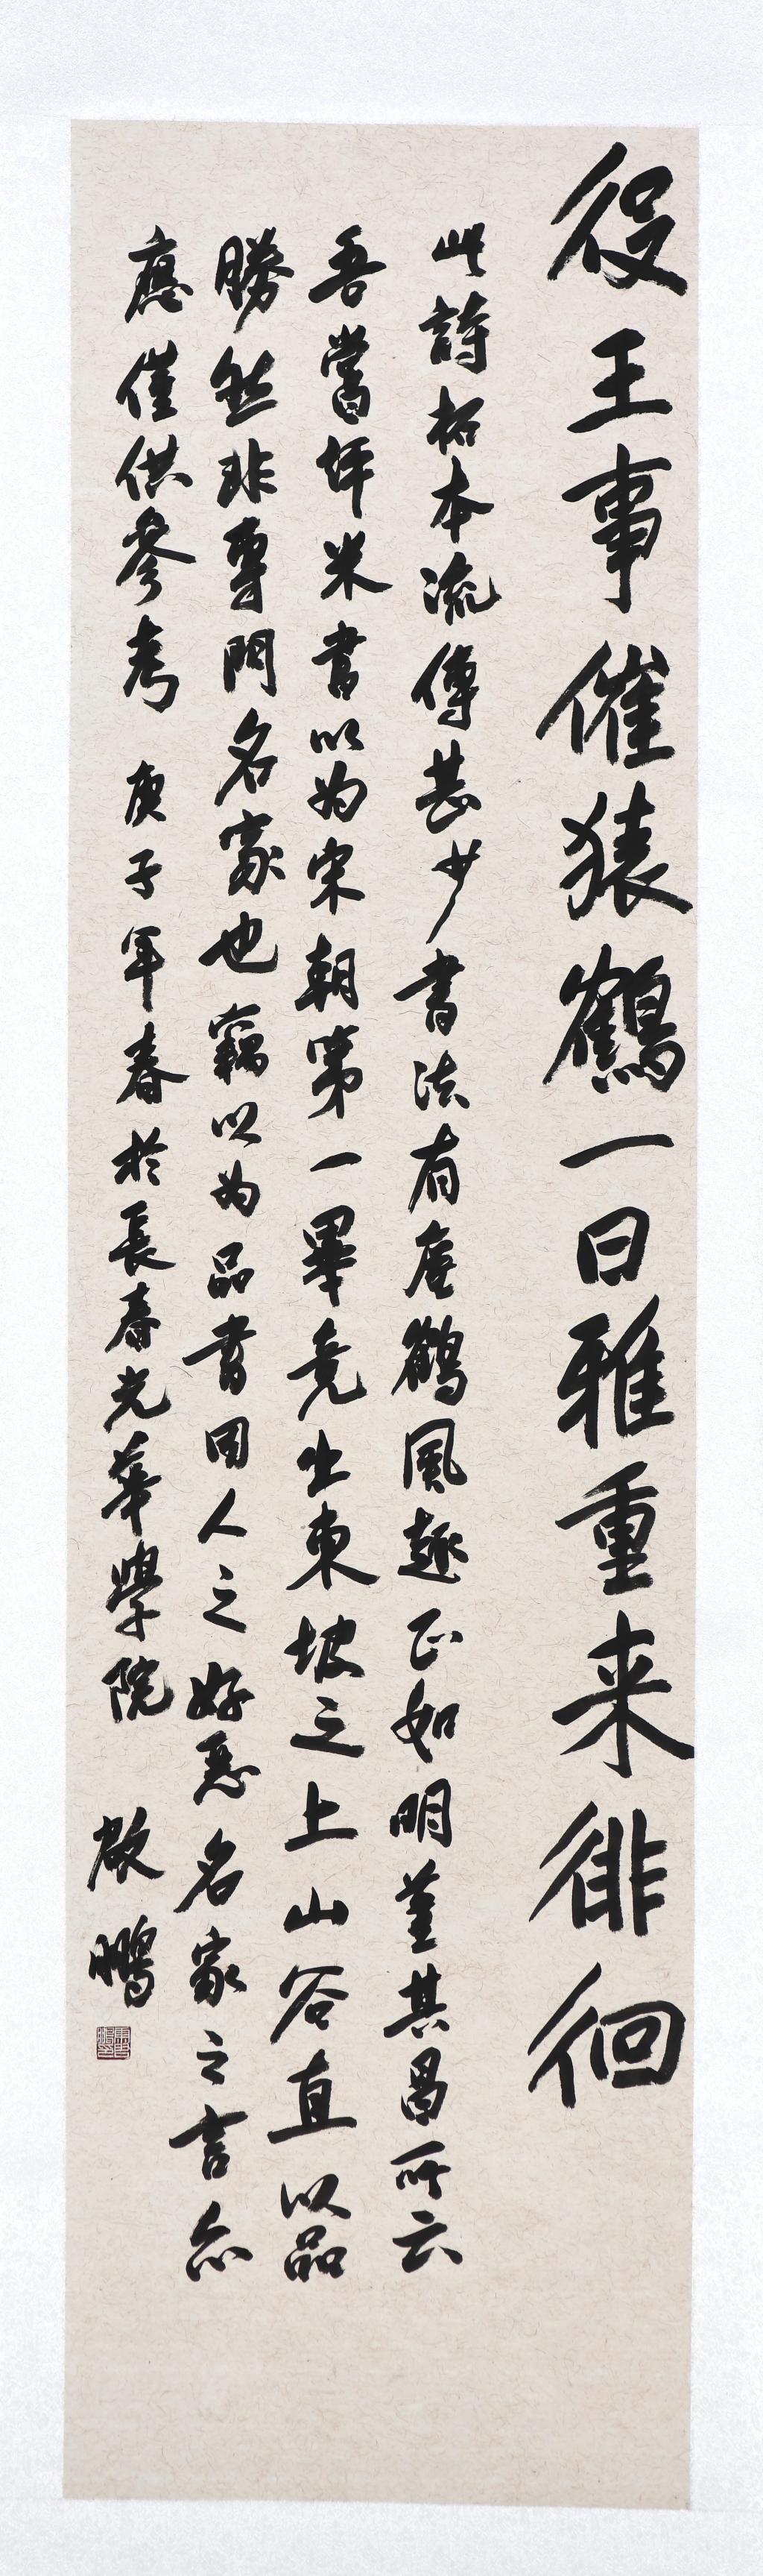 役王事催猿鶴一日雅重来徘徊
此詩拓本流傳甚少書法有瘞鶴風趣正如明董其昌所云
吾嘗評米書以为宋朝第一畢竟出東坡之上山谷直以品
勝然非專門名家也竊以为品書因人之好惡名家之言亦
應僅供參考 庚子年春於長春光華學院 啟鵬